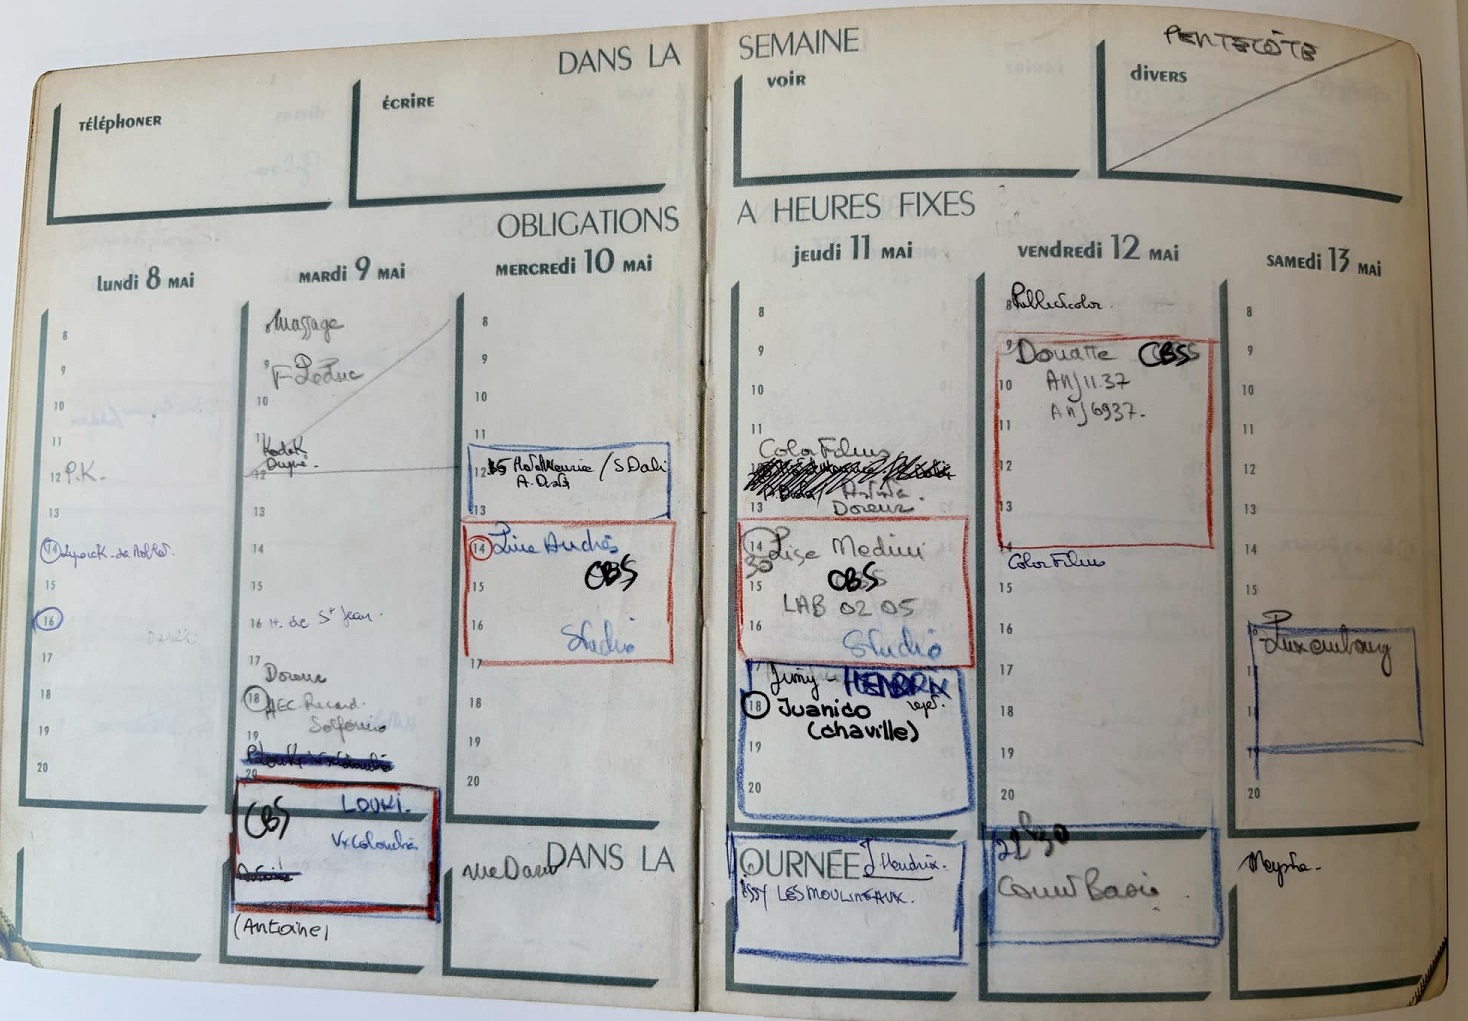 DANS LA SEMAINE
PENTECÔTE
Téléphoner
ÉCRIRE
voir
divers
OBLIGATIONS A HEURES FIXES
lundi 8 MAI
8
9
10
11
12 P.K.
13
14
15
16
17
18
19
20
MARDI 9 MAI
Massage
9
F. Leduc
10
11 Kodak
12
13
14
15
16 H. de St Jean.
17
18
19
20
CBS LOUKI.
Vx Colombier
(Antoine)
MERCREDI 10 MAI
8
9
10
11
12 / S. Dali
13
14 Lise Andrés
CBS
15
16 Studio
17
18
19
20
DANS LA JOURNÉE
jeudi 11 MAI
8
9
10
11
Color Films
13
14 Lise Medini
30
15 CBS
LAB 02 05
16 Studio
Jimy HENDRIX
18 Juanico
(chaville)
19
20
J. Hendrix.
ISSY LES MOULINEAUX.
VENDREDI 12 MAI
8 Publicolor.
9 Douane CBS
10 ANJ 11.37
ANJ 6937.
11
12
13
14
Color Films
15
16
17
18
19
20
21h30
Count Basie
SAMEDI 13 MAI
8
9
10
11
12
13
14
15
16
Luxembourg
17
18
19
20